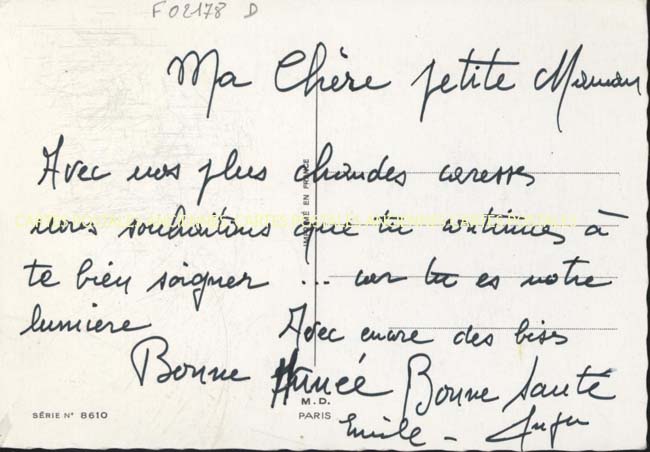 F02178 D
Ma Chère petite Maman
Avec nos plus chaudes caresses
nous souhaitons que tu continues à
te bien soigner ... car tu es notre
lumière
Avec encore des bises
Bonne Année Bonne Santé
Emile -
IMPRIMÉ EN FRANCE
M. D.
PARIS
SÉRIE N° 8610